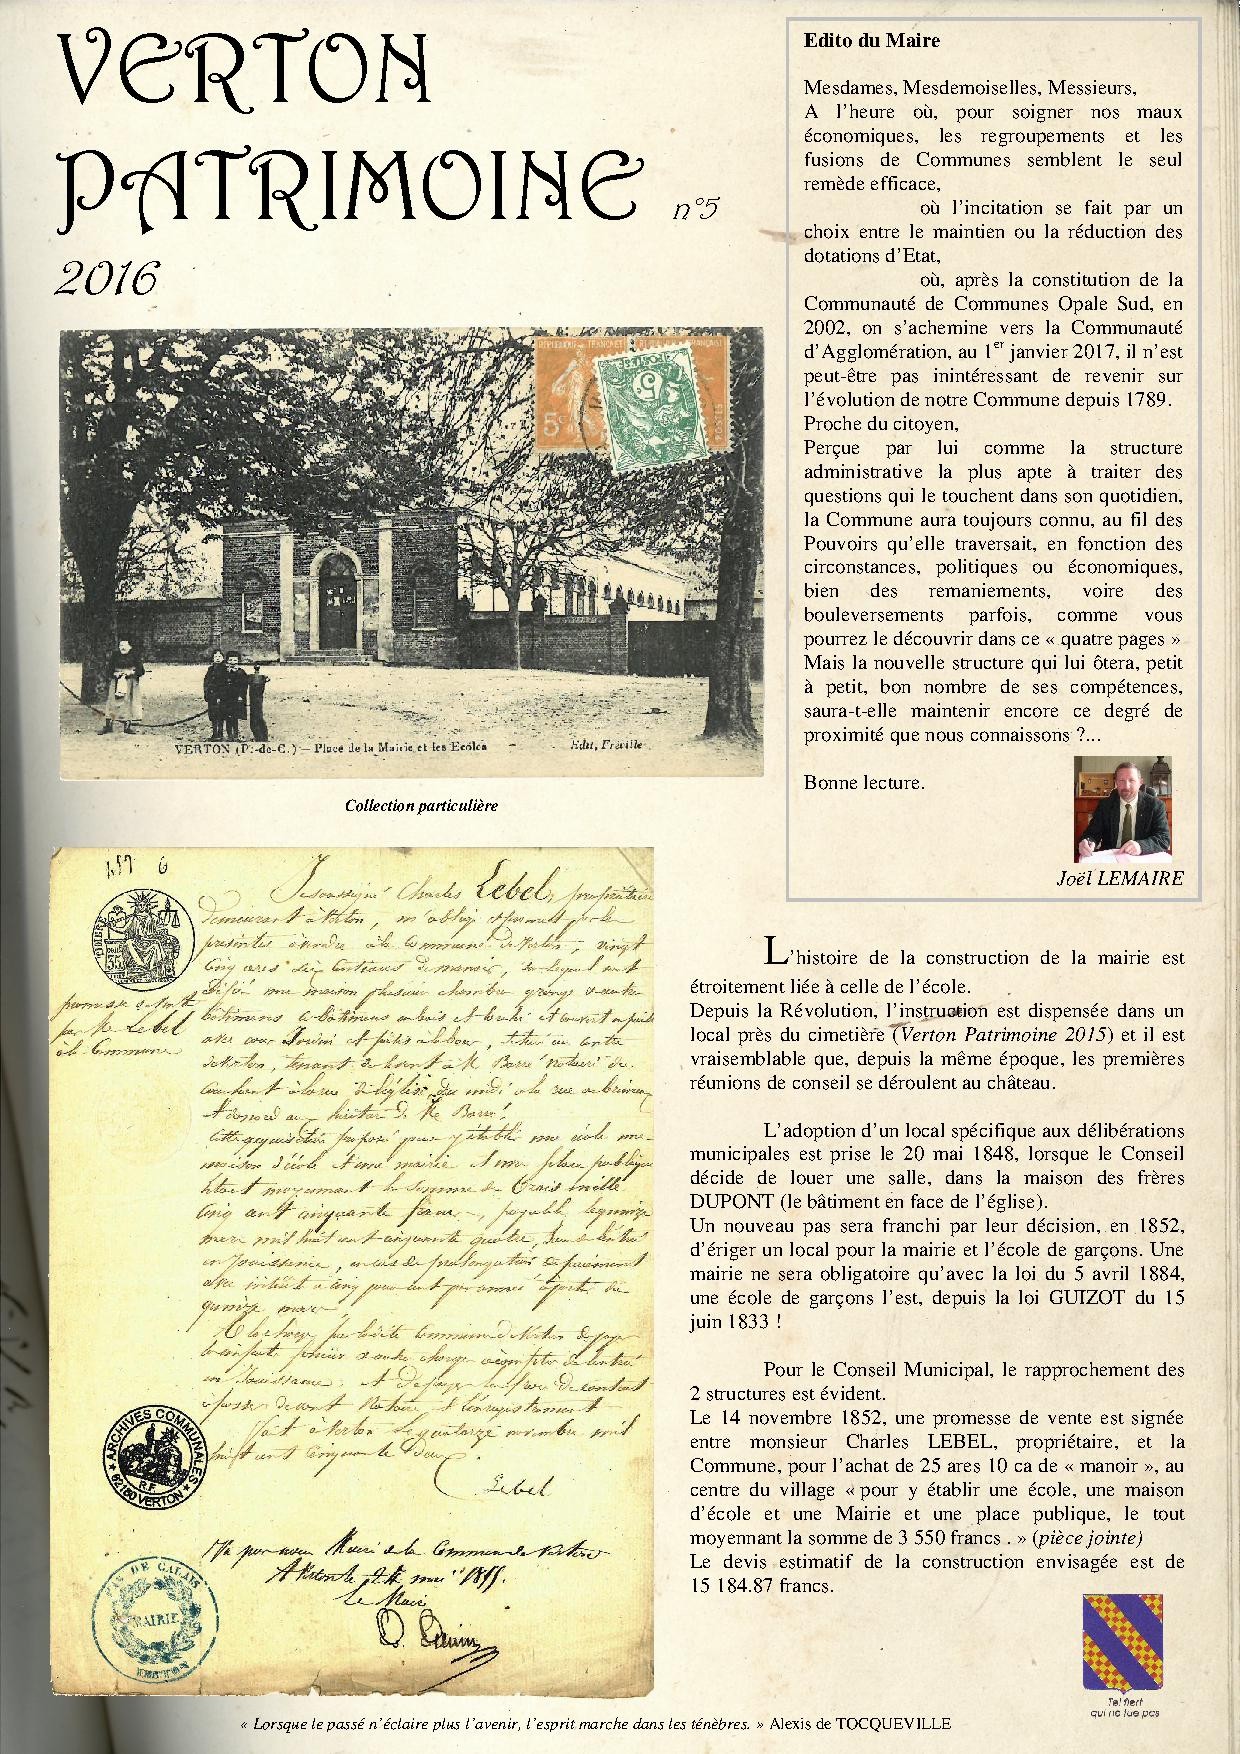 VERTON
PATRIMOINE n°5
2016
Edito du Maire
Mesdames, Mesdemoiselles, Messieurs,
A l'heure où, pour soigner nos maux
économiques, les regroupements et les
fusions de Communes semblent le seul
remède efficace,
où l'incitation se fait par un
choix entre le maintien ou la réduction des
dotations d'Etat,
où, après la constitution de la
Communauté de Communes Opale Sud, en
2002, on s'achemine vers la Communauté
d'Agglomération, au 1er janvier 2017, il n'est
peut-être pas inintéressant de revenir sur
l'évolution de notre Commune depuis 1789.
Proche du citoyen,
Perçue par lui comme la structure
administrative la plus apte à traiter des
questions qui le touchent dans son quotidien,
la Commune aura toujours connu, au fil des
Pouvoirs qu'elle traversait, en fonction des
circonstances, politiques ou économiques,
bien des remaniements, voire des
bouleversements parfois, comme vous
pourrez le découvrir dans ce « quatre pages »
Mais la nouvelle structure qui lui ôtera, petit
à petit, bon nombre de ses compétences,
saura-t-elle maintenir encore ce degré de
proximité que nous connaissons ?...
Bonne lecture.
Joël LEMAIRE
5c
VERTON (P.-de-C.) – Place de la Mairie et les Ecoles
Edit, Fréville
Collection particulière
Je soussigné Charles Lebel, propriétaire
demeurant à Verton, m'oblige
présentes à vendre à la Commune de Verton, vingt
cinq ares dix centiares de manoir,
promesse de vente
par Mr Lebel
à la Commune
maison d'école et une mairie et une place publique
le tout moyennant la somme de trois mille
cinq cent cinquante francs, payable le quinze
mars mil huit cent cinquante quatre,
quinze mars
Fait à Verton le quatorze novembre mil
huit cent cinquante deux.
Lebel
ARCHIVES COMMUNALES
R.F.
62180 VERTON
Vu par nous Maire de la Commune de Verton
Le Maire
PAS DE CALAIS
MAIRIE
VERTON
L'histoire de la construction de la mairie est
étroitement liée à celle de l'école.
Depuis la Révolution, l'instruction est dispensée dans un
local près du cimetière (Verton Patrimoine 2015) et il est
vraisemblable que, depuis la même époque, les premières
réunions de conseil se déroulent au château.
L'adoption d'un local spécifique aux délibérations
municipales est prise le 20 mai 1848, lorsque le Conseil
décide de louer une salle, dans la maison des frères
DUPONT (le bâtiment en face de l'église).
Un nouveau pas sera franchi par leur décision, en 1852,
d'ériger un local pour la mairie et l'école de garçons. Une
mairie ne sera obligatoire qu'avec la loi du 5 avril 1884,
une école de garçons l'est, depuis la loi GUIZOT du 15
juin 1833 !
Pour le Conseil Municipal, le rapprochement des
2 structures est évident.
Le 14 novembre 1852, une promesse de vente est signée
entre monsieur Charles LEBEL, propriétaire, et la
Commune, pour l'achat de 25 ares 10 ca de « manoir », au
centre du village « pour y établir une école, une maison
d'école et une Mairie et une place publique, le tout
moyennant la somme de 3 550 francs . » (pièce jointe)
Le devis estimatif de la construction envisagée est de
15 184.87 francs.
Tel fiert
qui ne tue pas
« Lorsque le passé n'éclaire plus l'avenir, l'esprit marche dans les ténèbres. » Alexis de TOCQUEVILLE